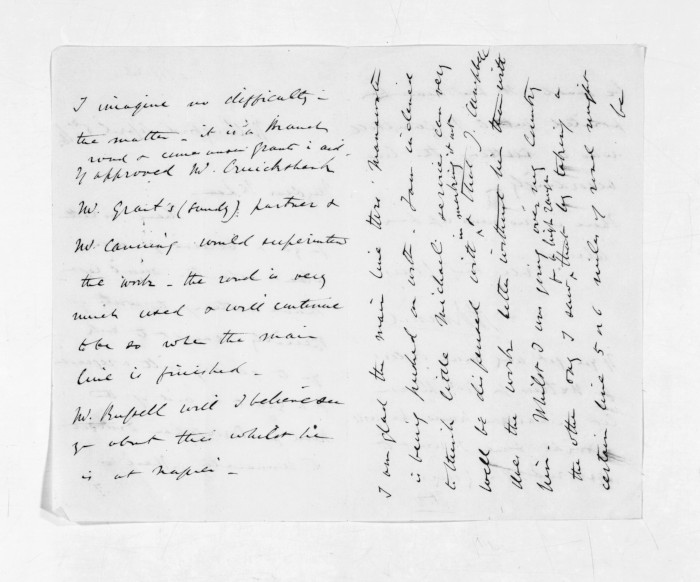 I imagine no difficulty in
the matter - it is a Branch
road & comes under grants in aid.
If approved Mr. Cruickshank
Mr. Grant's (Sandy) partner &
Mr. Canning would superintend
the work - the road is very
much used & will continue
to be so when the main
line is finished -
Mr. Russell will I believe see
you about this whilst he
is at Napier -
I am glad the main line thro' Manawatu
is being pushed on with. I am inclined
to think little Michael's services can very
well be dispensed with & that J. Campbell
in marking it out
does the work better without him than with
him Whilst I am going over my Country
& high ranges
the other day I saw that by taking a
certain line 5 or 6 miles of road might
be